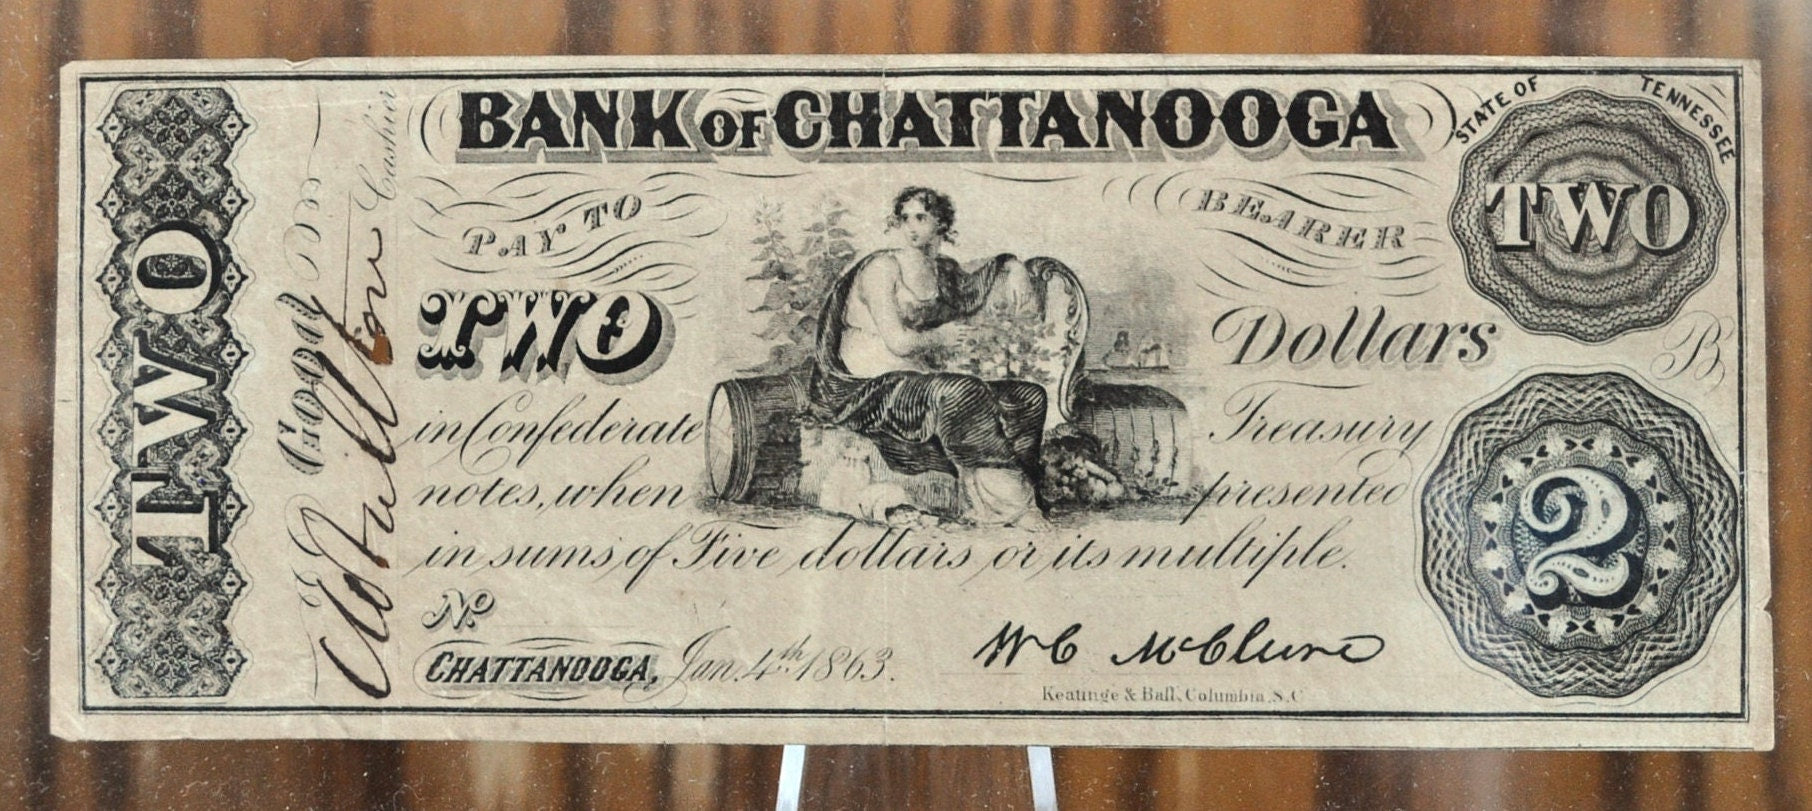 BANK OF CHATTANOOGA
STATE OF TENNESSEE
PAY TO BEARER
TWO
TWO Dollars
TWO
in Confederate Treasury
notes, when presented
in sums of Five dollars or its multiple.
No
CHATTANOOGA, Jan. 4th 1863.
W C McClure
Keatinge & Ball, Columbia, S.C
2
B
Good
Cashier